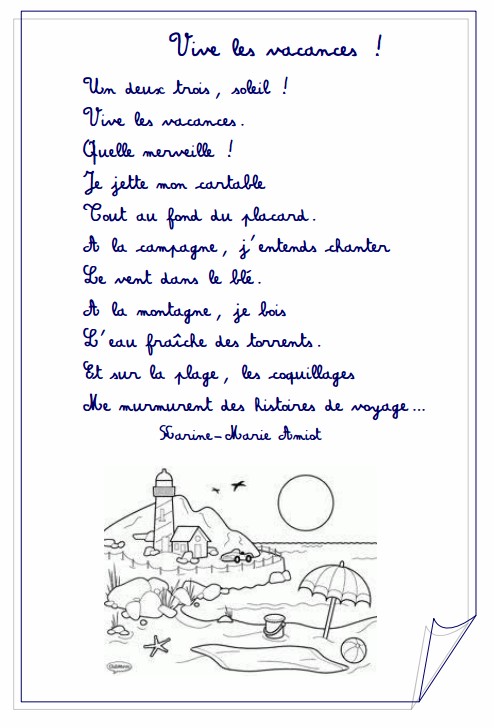 Vive les vacances !
Un deux trois, soleil !
Vive les vacances.
Quelle merveille !
Je jette mon cartable
Tout au fond du placard.
A la campagne, j'entends chanter
Le vent dans le blé.
A la montagne, je bois
L'eau fraîche des torrents.
Et sur la plage, les coquillages
Me murmurent des histoires de voyage...
Karine-Marie Amiot